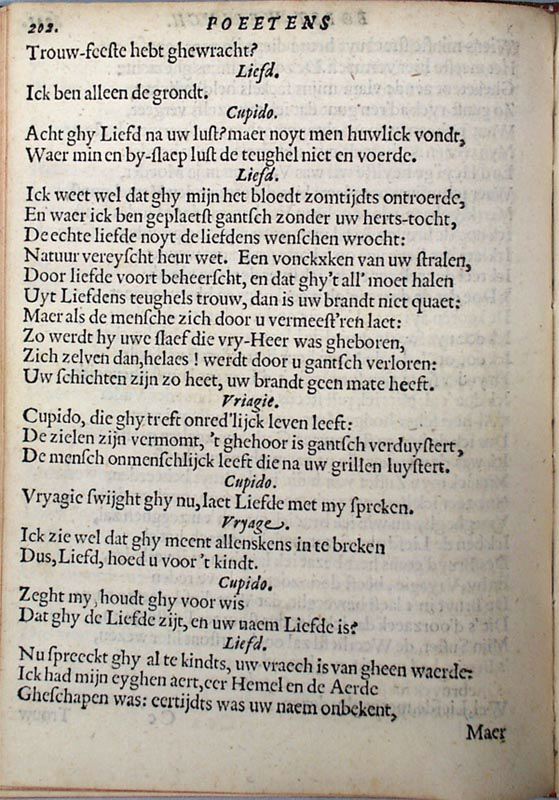 202. POEETENS
Trouw-feeſte hebt ghewracht?
Liefd.
Ick ben alleen de grondt.
Cupido.
Acht ghy Liefd na uw luſt? maer noyt men huwlick vondt,
Waer min en by-ſlaep luſt de teughel niet en voerde.
Liefd.
Ick weet wel dat ghy mijn het bloedt zomtijdts ontroerde,
En waer ick ben geplaetſt gantſch zonder uw herts-tocht,
De echte liefde noyt de liefdens wenſchen wrocht:
Natuur vereyſcht heur wet. Een vonckxken van uw ſtralen,
Door liefde voort beheerſcht, en dat ghy't all' moet halen
Uyt Liefdens teughels trouw, dan is uw brandt niet quaet:
Maer als de menſche zich door u vermeeſt'ren laet:
Zo werdt hy uwe ſlaef die vry-Heer was gheboren,
Zich zelven dan, helaes! werdt door u gantſch verloren:
Uw ſchichten zijn zo heet, uw brandt geen mate heeft.
Vriagie.
Cupido, die ghy treft onred'lijck leven leeft:
De zielen zijn vermomt, 't ghehoor is gantſch verduyſtert,
De menſch onmenſchlijck leeft die na uw grillen luyſtert.
Cupido.
Vryagie ſwijght ghy nu, laet Liefde met my ſpreken.
Vryage.
Ick zie wel dat ghy meent allenskens in te breken
Dus, Liefd, hoed u voor 't kindt.
Cupido.
Zeght my, houdt ghy voor wis
Dat ghy de Liefde zijt, en uw naem Liefde is?
Liefd.
Nu ſpreeckt ghy al te kindts, uw vraech is van gheen waerde:
Ick had mijn eyghen aert, eer Hemel en de Aerde
Gheſchapen was: eertijdts was uw naem onbekent,
Maer